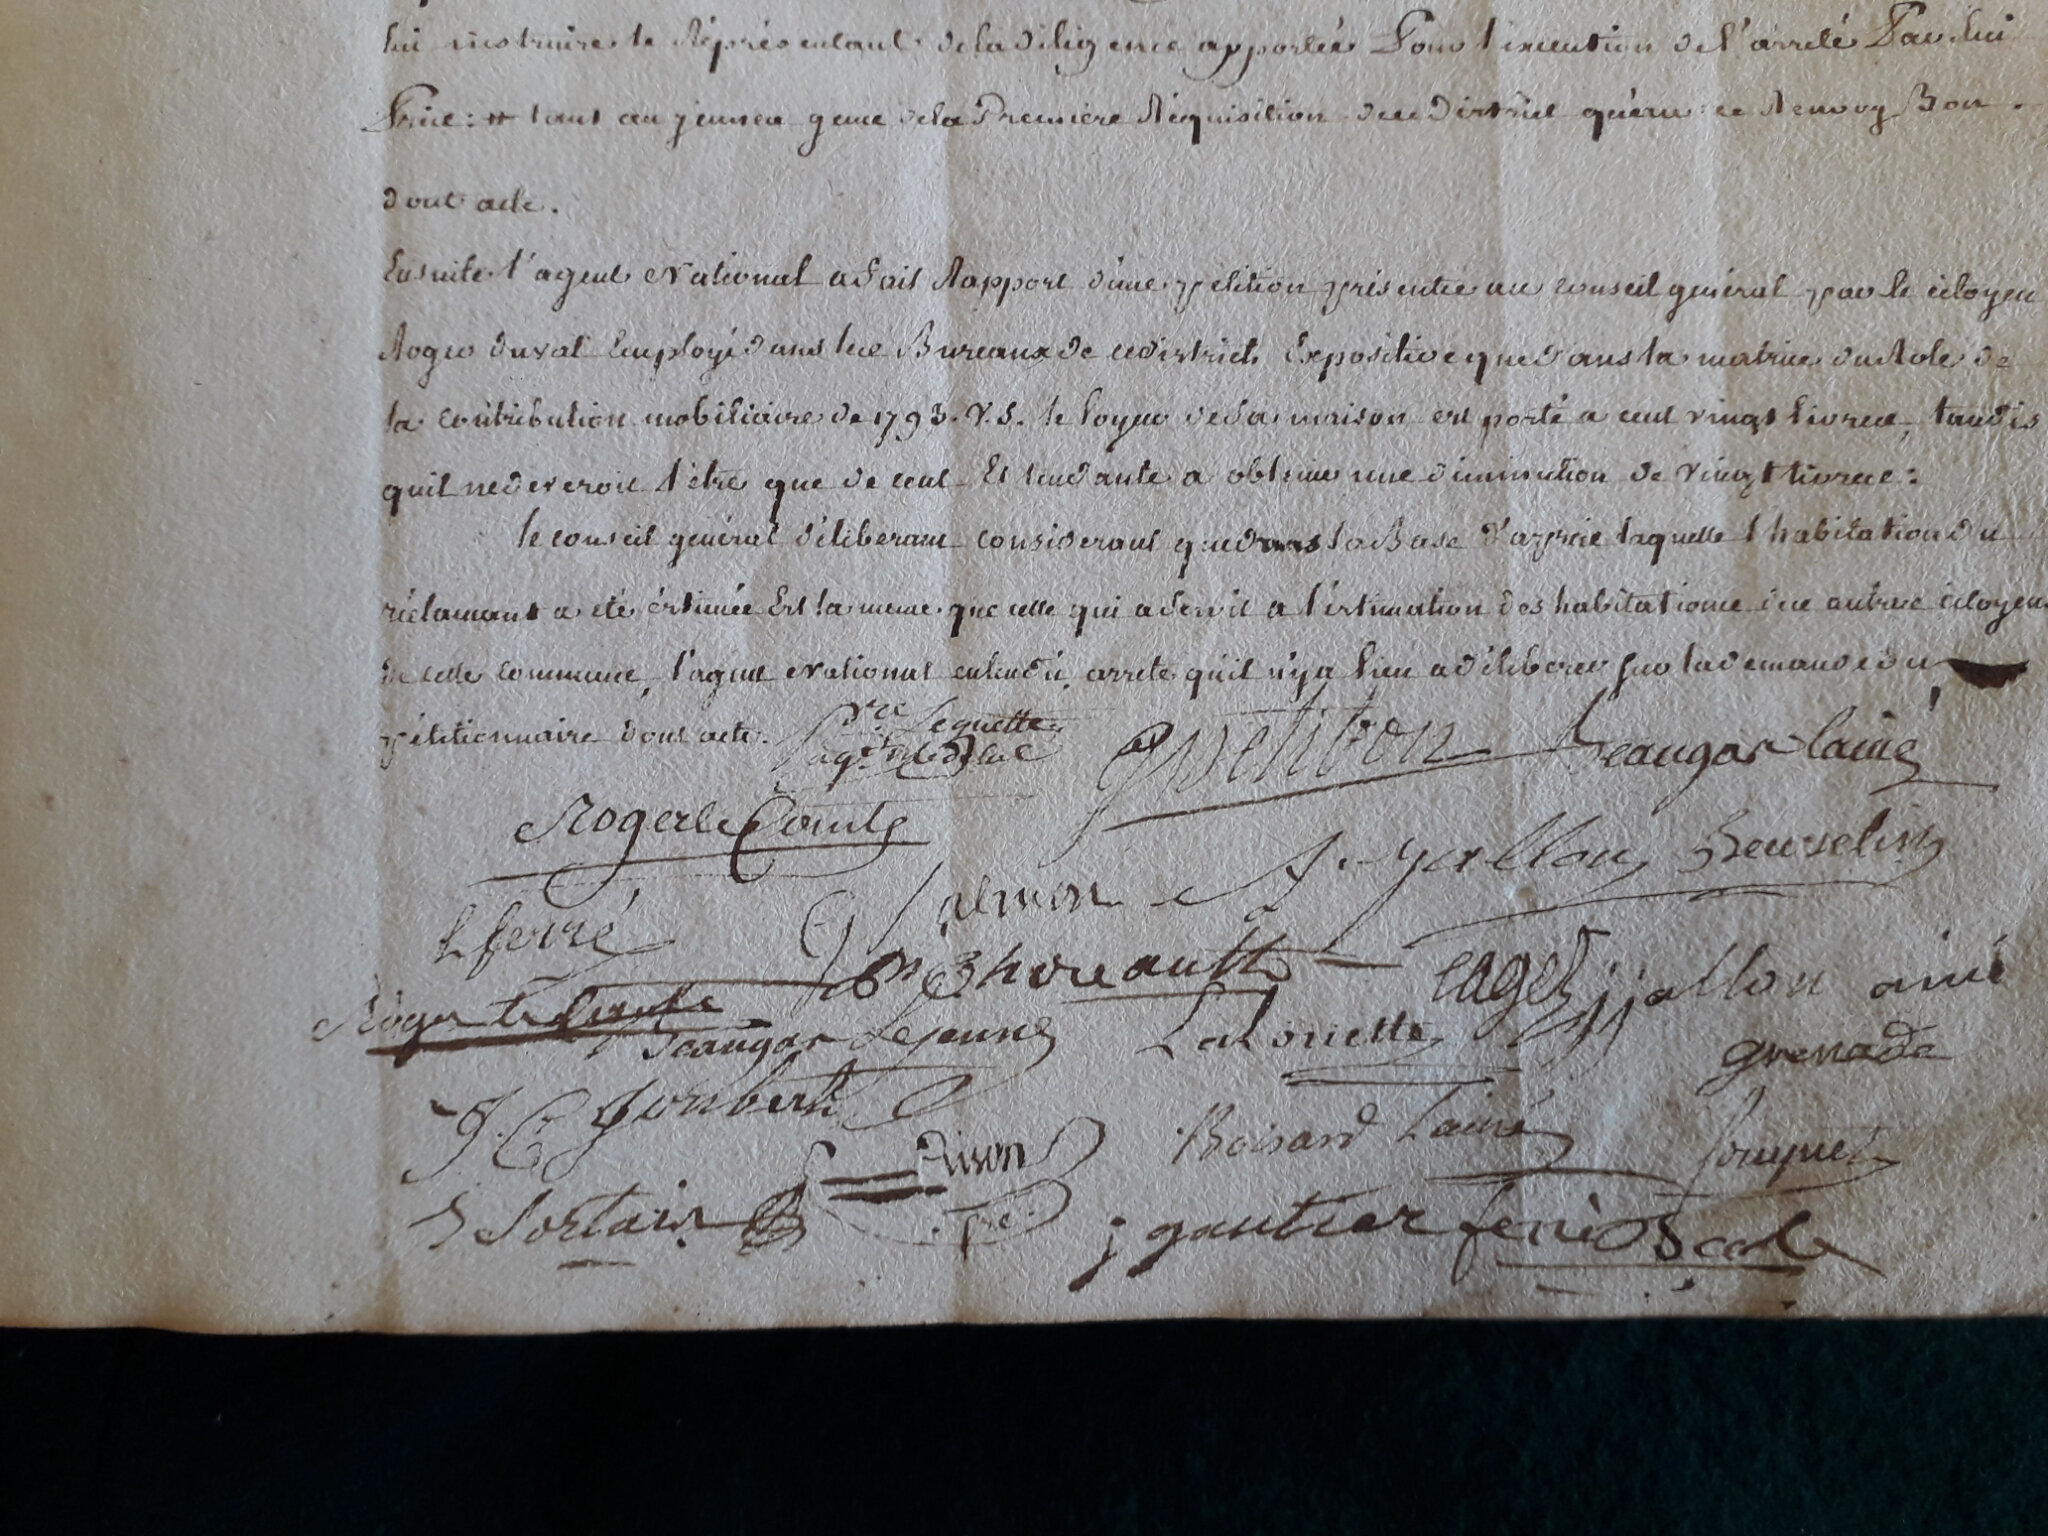 lui instruire le Représentant de la diligence apportée Pour l'execution de l'arrété Par lui
Prise: tant au jeunes gens de la Première Réquisition de ce District qu'en ce Renvoy Bon.
dont acte.
Ensuite l'agent National a fait Rapport d'une pétition présentée au conseil général par le citoyen
Roger duval Employé dans les Bureaux de ce district, Expositive que dans la matrice du Role de
la contribution mobiliaire de 1793. V.S. le loyer de sa maison est porté a cent vingt livres, tandis
quil ne deveroit l'être que de cent Et tendante a obtenir une diminution de vingt livres:
le conseil général déliberant considerant que la Base d'après laquelle l'habitation du
réclamant a été éstimée Est la meme que celle qui a servit a l'estimation des habitations des autres citoyens
de cette commune, l'agent National entendu, arrete qu'il n'y a lieu a déliberer sur la demande du
pétitionnaire dont acte. Pre Lequette
agt
Petitbon Beaugar lainé
Roger le Comte
J. jallon Beuselin
L ferré Salmon
Choreault Eager jallon ainé
Roger le Comte
Beaugar Lejeune LaLouette grenade
J. C. Joubert
Rison Boisard Lainé Jouquet
Sortais
Pre. j gautier ferré Secle